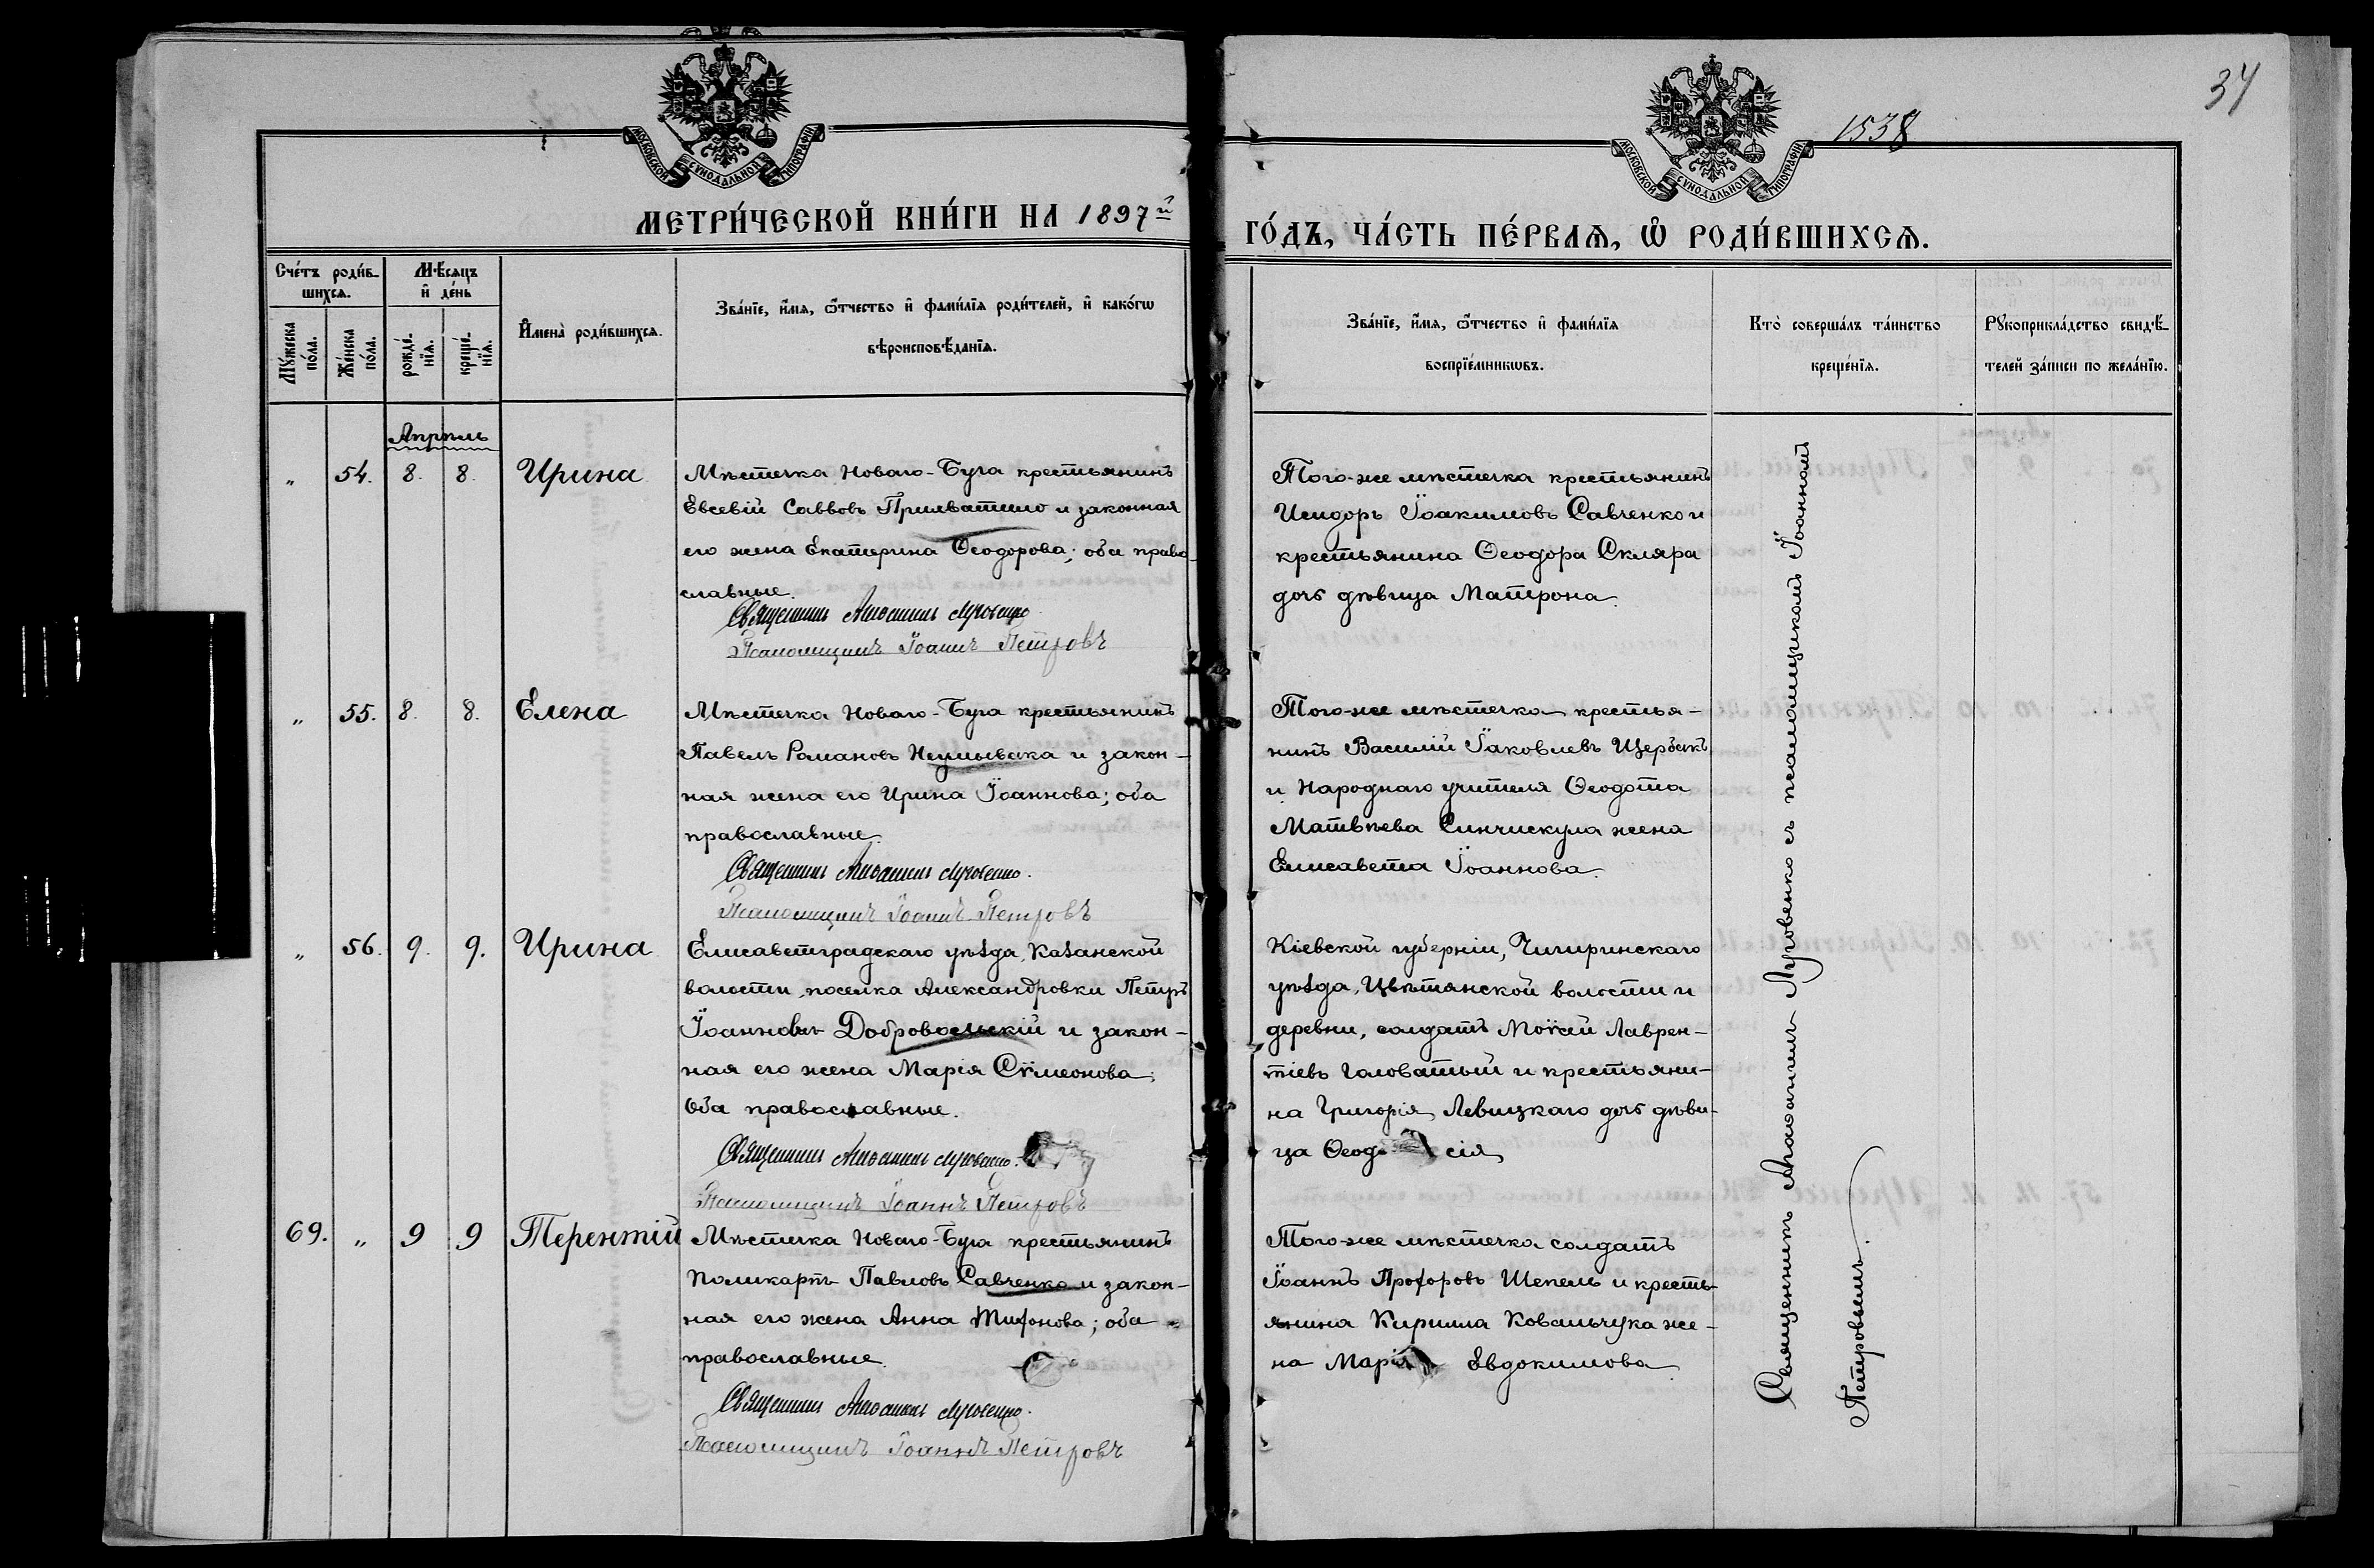 34
1538
МОСКОВСКОЙ СУНОДАЛЬНОЙ ТИПОГРАФІИ
МОСКОВСКОЙ СУНОДАЛЬНОЙ ТИПОГРАФІИ
МЕТРИ́ЧЕСКОЙ КНИ́ГИ НА 1897й
ГО́ДЪ, ЧА́СТЬ ПЕ́РВАѦ, Ѡ РОДИ́ВШИХСѦ.
Сче́тъ роди́в-
шихсѧ.
Мꙋ́жеска по́ла.
Же́нска по́ла.
Мѣ́сѧцъ и҆ де́нь
рожде́-нїѧ.
креще́-нїѧ.
И҆мена̀ роди́вшихсѧ.
Зва́нїе, и҆́мѧ, ѻ҆́тчество и҆ фами́лїѧ роди́телей, и҆ како́гѡ
вѣроисповѣ́данїѧ.
Зва́нїе, и҆́мѧ, ѻ҆́тчество и҆ фами́лїѧ
воспрїе́мникѡвъ.
Кто̀ соверша́лъ та́инство
креще́нїѧ.
Рꙋкоприкла́дство свидѣ́-
телей за́писи по жела́нїю.
Апрѣль
„ 54. 8. 8. Ирина
Мѣстечка Новаго-Буга крестьянинъ
Евсевій Саввовъ и законная
его жена Екатерина Ѳеодорова; оба право-
славные.
Священникъ Аѳанасій Луговенко
Псаломщикъ Іоаннъ Петровъ
Того-же мѣстечка крестьянинъ
Исидоръ Іоакимовъ Савченко и
крестьянина Ѳеодора Скляра
дочь дѣвица Матрона.
„ 55. 8. 8. Елена
Мѣстечка Новаго-Буга крестьянинъ
Павелъ Романовъ Неумывака и закон-
ная жена его Ирина Іоаннова; оба
православные.
Священникъ Луговенко.
Псаломщикъ Іоаннъ Петровъ
Того-же мѣстечка крестья-
нинъ Василій Іаковлевъ Щербакъ
и Народнаго учителя Ѳеодота
Матвѣева Синчискула жена
Елисавета Іоаннова.
„ 56. 9. 9. Ирина
Елисаветградскаго уѣзда, Казанской
волости, поселка Александровки Петръ
Іоанновъ Добровольскій и закон-
ная его жена Марія Сѵмеонова;
Оба православные.
Священникъ Луговенко.
Псаломщикъ Іоаннъ Петровъ
Кіевской губерніи, Чигиринскаго
уѣзда, Цвѣтянской волости и
деревни, солдатъ Моѵсій Лаврен-
тіевъ Головатый и крестьяни-
на Григорія Левицкаго дочь дѣви-
ца Ѳеодосія
69. „ 9 9 Терентій
Мѣстечка Новаго-Буга крестьянинъ
Поликарпъ Павловъ Савченко и закон-
ная его жена Анна Тифонова; оба
православные.
Священникъ Луговенко.
Псаломщикъ Іоаннъ Петровъ
Того-же мѣстечка солдатъ
Іоаннъ Прохоровъ Шепель и кресть-
янина Кирилла Ковальчука же-
на Марія Евдокимова
Священникъ Луговенко съ псаломщикомъ Іоанномъ
Петровымъ.